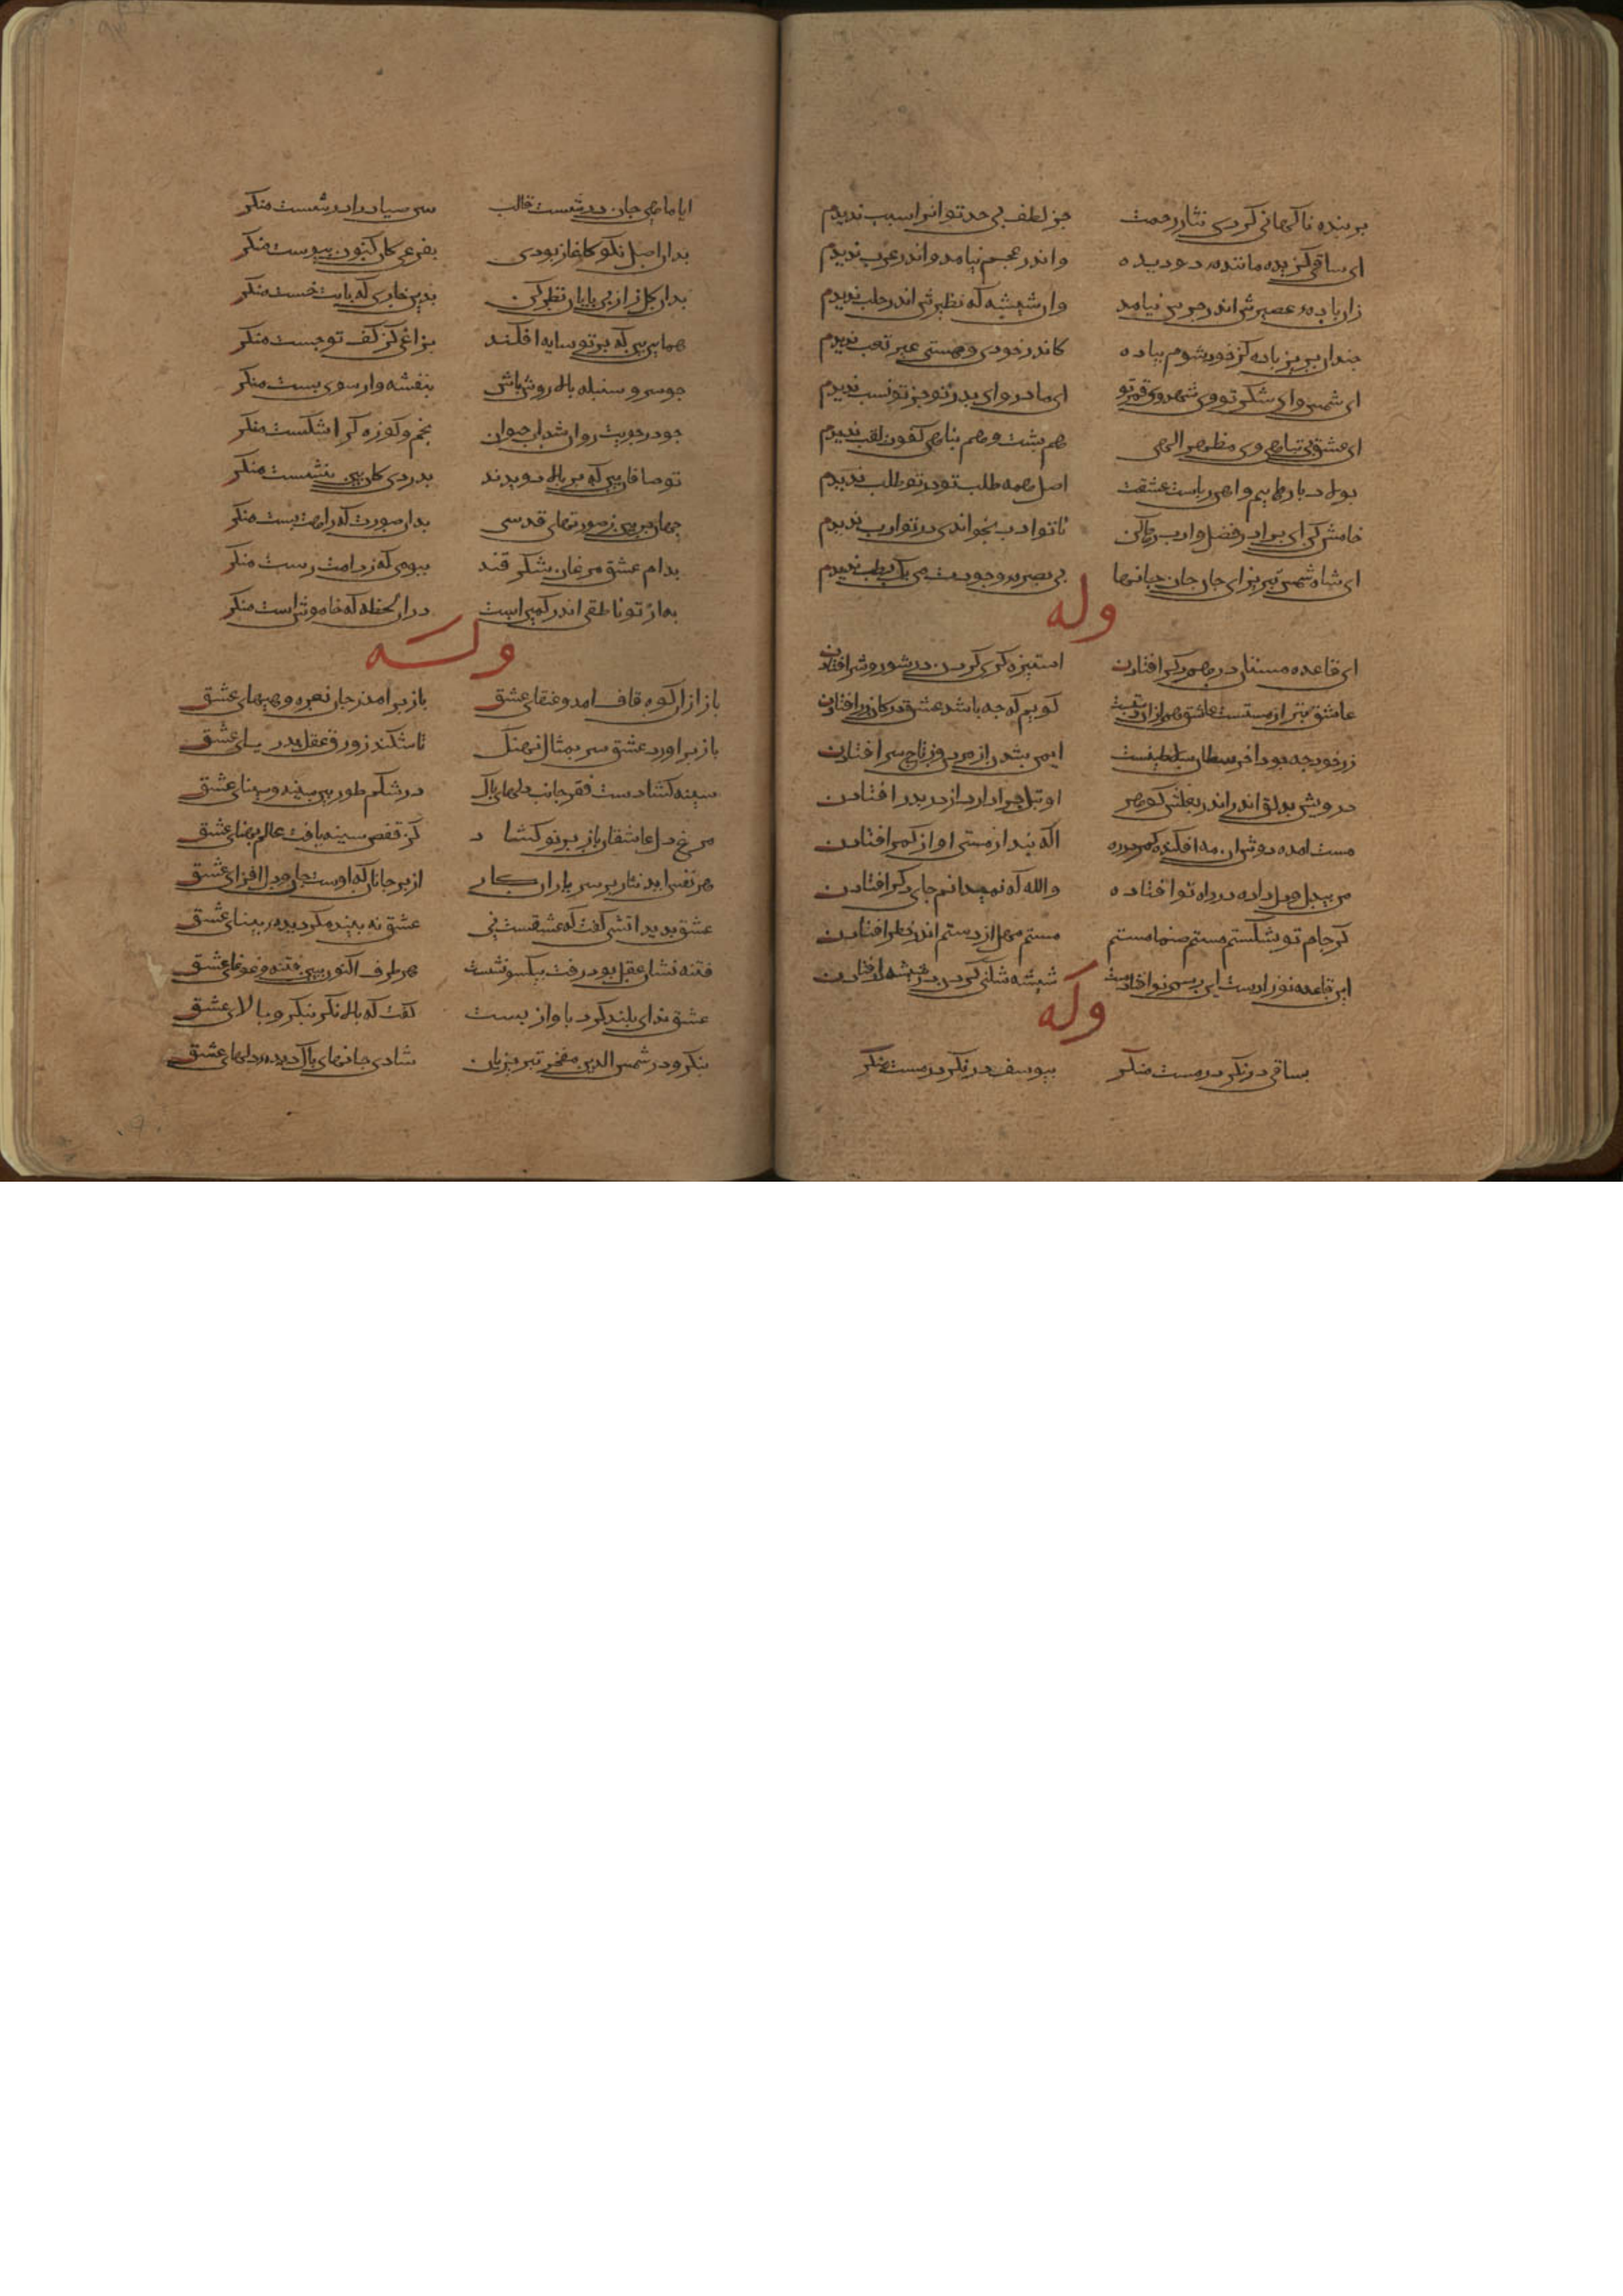 بر بنده ناکهانی کردی نثار رحمت جز لطف بی حد تو انرا سبب ندیدم
ای ساقی کزیده مانندهٔ دو دیده واندر عجم نیامد واندر عرب ندیدم
زان باده که عصیرش اندر چرش نیامد وان شیشه که نظیرش اندر حلب ندیدم
چندان بریز باده کز خود شوم پیاده کاندر خودی و هستی غیر تعب ندیدم
ای شمس وای شکر تو وی شهد وی قمر تو ای مادر وای پدر تو جز تو نسب ندیدم
ای عشق بی تناهی وی مظهر الهی هم پشت وهم پناهی کفوت لقب ندیدم
بولاد بارهاییم واهن رباست عشقت اصل همه طلب تو در تو طلب ندیدم
خامش کن ای برادر فضل وادب رها کن تا تو ادب بخواندی در تو ادب ندیدم
ای شاه شمس تبریز ای جان جان جانها بی بصره وجودت من یک رطب ندیدم
وله
ای قاعده مستان در همدکر افتادن استیزه کری کردن در شور وشر افتادن
عاشق بتر از مستست عاشق هم ازان دستست کویم که چه باشد عشق در کان زر افتادن
زر خود چه بود عاشق سلطان سلاطینست ایمن شدن از مردن وز تاج سر افتادن
درویش بدلق اندر اندر بغلش کوهر او ننک چرا دارد از در بدر افتادن
مست امده دوش ان مه افکنده کمر در ره اکه نبد از مستی او از کمر افتادن
من بیدل ودل داده در راه تو افتاده والله که نمیدانم جای دکر افتادن
کر جام تو بشکستم مستم صنما مستم مستم مهل از دستم اندر خطر افتادن
این قاعده نوزادست این رسم نو افتادست شیشه شکنی کردن در شیشه کر افتادن
وله
بساقی در نکر در مست منکر بیوسف در نکر در دست منکر
ایا ماهی جان در شست قالب ببین صیاد را در شست منکر
بدان اصل نکر کاغاز بودی بفرعی کان کنون پیوست منکر
بدان کلزار بی پایان نظر کن بدین خاری که پایت خست منکر
همایی بین که بر تو سایه افکند بزاغی کز کف تو جست منکر
چو سرو و سنبله بالا روش باش بنفشه وار سوی پست منکر
چو در جویت روان شد اب حیوان بخم وکوزه کر اشکست منکر
جهان پر بین ز صورتهای قدسی بدان صورت که راهت بست منکر
بدام عشق مرغان شکر فند ببومی که ز دامت رست منکر
به از تو ناطقی اندر کمین است دران لحظه که خاموش است منکر
وله
باز ازان کوه قاف امد عنقای عشق باز بر امد ز جان نعره وهیهای عشق
باز بر اورد عشق سر بمثال نهنک تا شکند زورق عقل بدریای عشق
سینه کشادست فقر جانب دلهای پاک در شکم طور بین سینه سینای عشق
مرغ دل عاشقان باز پر نو کشاد کز قفص سینه یافت عالم پهنای عشق
هر نفس اید نثار بر سر یاران کار از بر جانان که اوست جان ودل افزای عشق
عشق بدید اتشی کفت که عشقست نی عشق نه بیند مکر دیده بینای عشق
فتنه نشان عقل بود رفت بیکسو نشست هر طرف اکنون ببین فتنه وغوغای عشق
عشق ندای بلند کرد باواز پست کفت که بالا نکر بنکر وبالای عشق
بنکر ودر شمس الدین مفخر تبریزیان شادی جانهای پاک دیده دلهای عشق